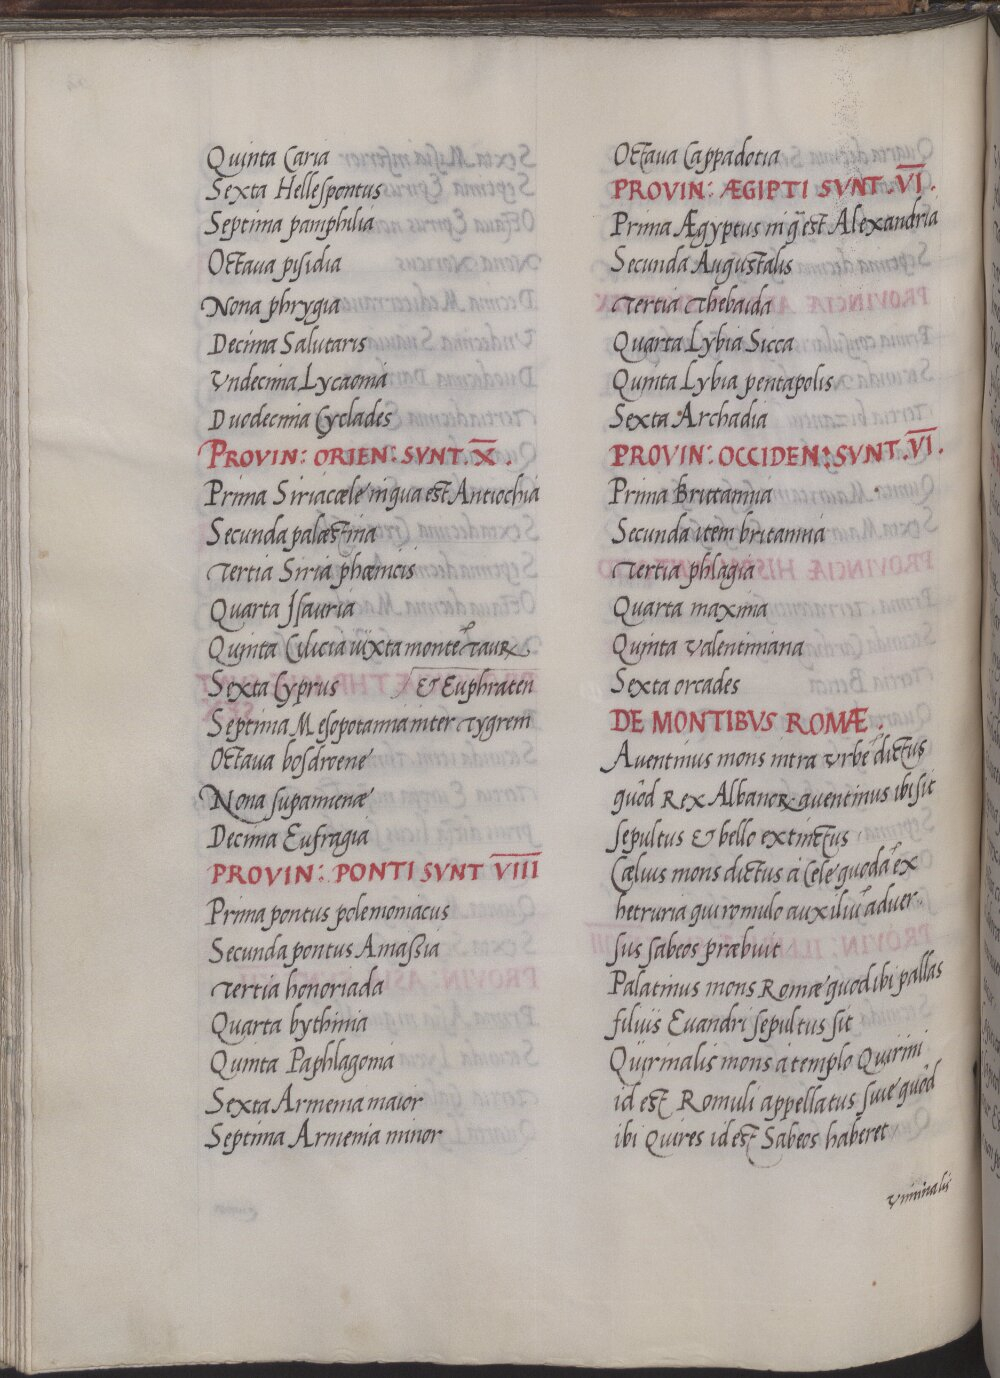 Quinta Caria
Sexta Hellespontus
Septima pamphilia
Octaua pisidia
Nona phrygia
Decima Salutaris
Vndecima Lycaonia
Duodecima Cyclades
PROVIN: ORIEN: SVNT. X̅.
Prima Siriacæle in qua est Antiochia
Secunda palæstina
Tertia Siria phænicis
Quarta Isauria
Quinta Cilicia iuxta montē Taurꝝ.
Sexta Cyprus & Euphraten
Septima Mesopotamia inter Tygrem
Octaua bosdroene
Nona supamienæ
Decima Eufragia
PROVIN: PONTI SVNT V̅I̅I̅I̅
Prima pontus polemoniacus
Secunda pontus Amaßia
Tertia honoriada
Quarta bythinia
Quinta Paphlagonia
Sexta Armenia maior
Septima Armenia minor
Octaua Cappadotia
PROVIN: ÆGIPTI SVNT. V̅I̅.
Prima Ægyptus in q̄ est Alexandria
Secunda Augustalis
Tertia Thebaida
Quarta Lybia Sicca
Quinta Lybia pentapolis
Sexta Archadia
PROVIN: OCCIDEN: SVNT. V̅I̅.
Prima Brittannia
Secunda item britannia
Tertia phlagia
Quarta maxima
Quinta valentiniana
Sexta orcades
DE MONTIBVS ROMÆ.
Auentinus mons intra Vrbē dictus
quòd Rex Albanoꝝ auentinus ibi sit
sepultus & bello extinctus
Cælius mons dictus à Cele quodā ex
hetruria qui romulo auxiliū aduer-
sus sabeos præbuit
Palatinus mons Romæ quod ibi pallas
filius Euandri sepultus sit
Quirinalis mons à templo Quirini
id est Romuli appellatus siue quòd
ibi Quires id est Sabeos haberet
Viminalis